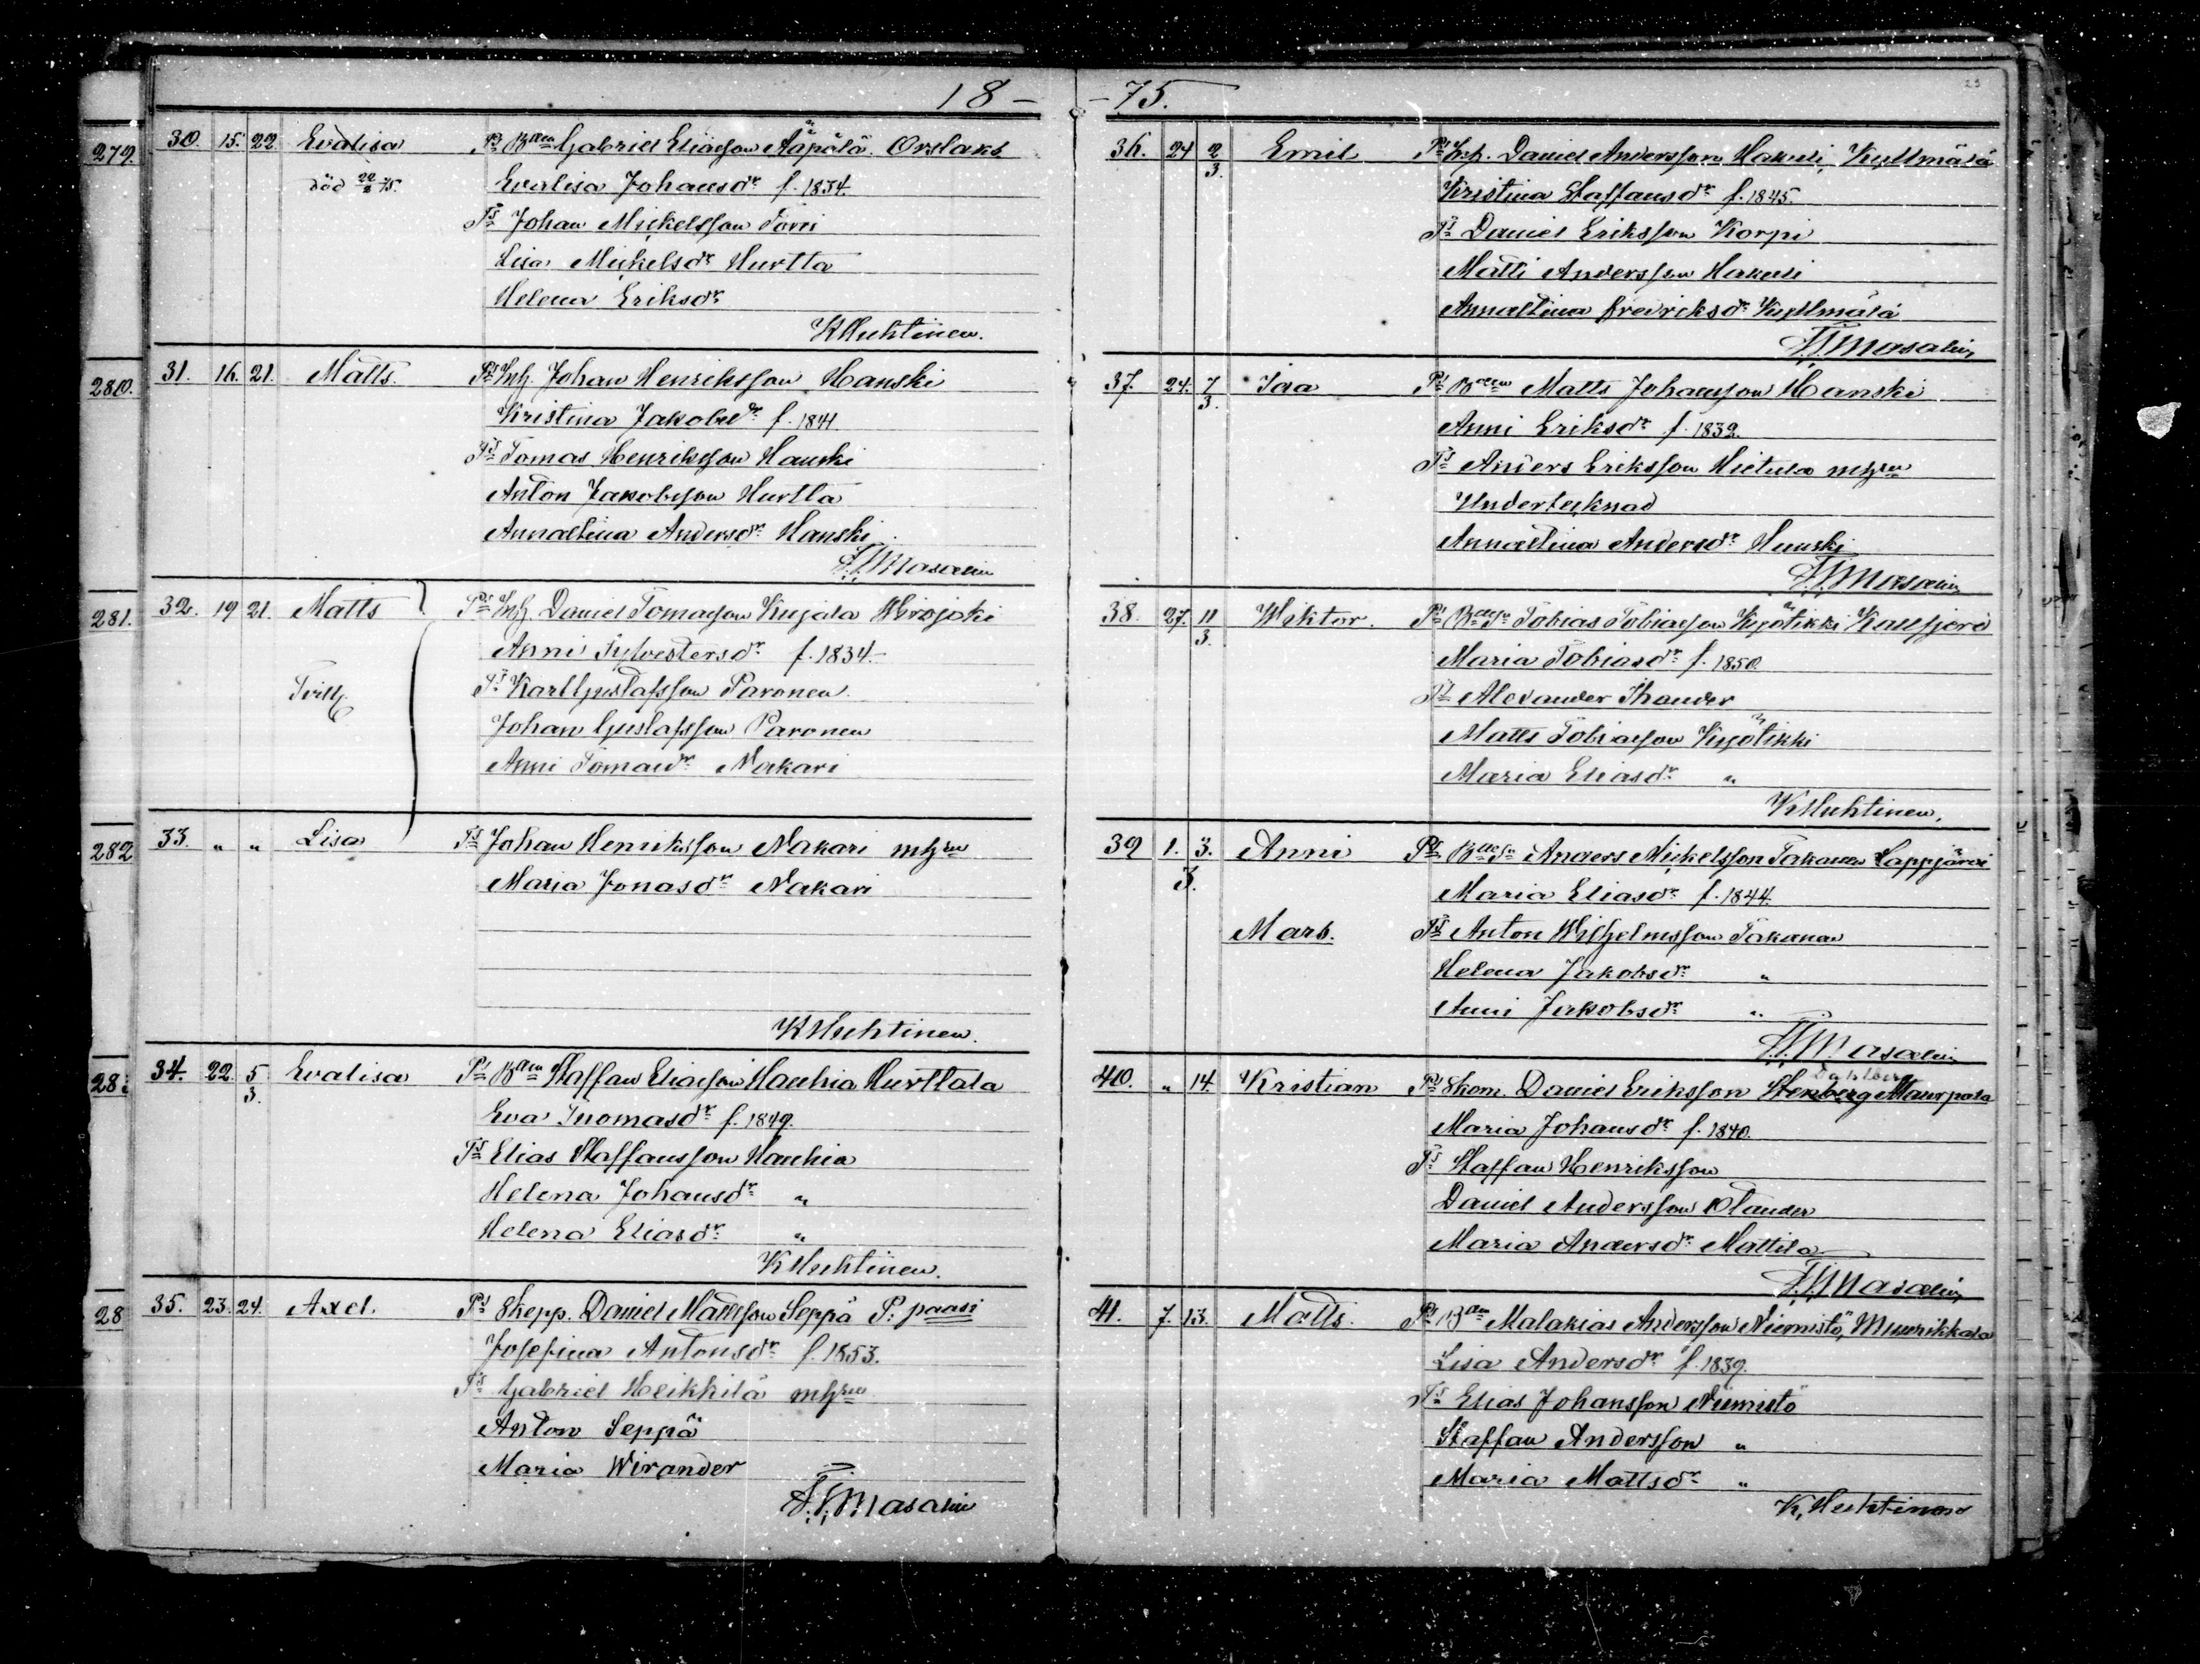 18 - - 75.
279. 30. 15. 22. Evalisa Ps Bden Gabriel Eliasson Aäpälä. Orslaks
död 22/2 75. Evalisa Johansdr f. 1834.
Ts Johan Mickelsson Torri
Lisa Mickelsdr Hurtta
Helena Eriksdr
K Huhtinen.
280. 31. 16. 21. Matts. Ps Inh. Johan Henriksson Hanski
Kristina Jakobsdr f. 1841
Ts Tomas Henriksson Hanski
Anton Jakobsson Hurtta
Annastina Andersdr Hanski
F.F. Masalin
281. 32. 19 21. Matts Ps Inh. Daniel Tomasson Kujala Wirojoki
Anni Sylvestersdr f. 1834.
Tvill. Ts Karl Gustafsson Paronen.
Johan Gustafsson Paronen
Anni Tomasdr Nakari
282 33. " " Lisa Ts Johan Henriksson Nakari mhru
Maria Jonasdr Nakari
K Huhtinen.
28 34. 22. 5/3. Evalisa Ps Bden Staffan Eliasson Hauhia Hurttala
Eva Tuomasdr f. 1849.
Ts Elias Staffansson Hauhia
Helena Johansdr "
Helena Eliasdr "
K Huhtinen.
28 35. 23. 24. Axel. Ps Skepp. Daniel Mattsson Seppä P: paasi
Josefina Antonsdr f. 1853.
Ts Gabriel Heikkilä mhru
Anton Seppä
Maria Wirander
F.F. Masalin
23
36. 24 2/3. Emil Ps Inh. Daniel Andersson Hakuli, Kyllmälä
Kristina Staffansdr f. 1845.
Ts Daniel Eriksson Korpi
Matti Andersson Hakuli
Annastina Fredriksdr Kyllmälä
F.F. Masalin
37. 24. 7/3. Ida Ps Bden Matts Johansson Hanski
Anni Eriksdr f. 1832.
Ts Anders Eriksson Hietula mhru
Undertecknad
Annastina Andersdr Hanski
F.F. Masalin
38. 27. 11/3. Wiktor. Ps Tobias Tobiasson Kyötikki
Maria Tobiasdr f. 1850.
Ts Alexander Thander
Matts Tobiasson Kyötikki
Maria Eliasdr "
K Huhtinen.
39 1./3. 3. Anni Ps Anders Mickelsson Takanen Lappjärvi
Maria Eliasdr f. 1844.
Mars. Ts Anton Wilhelmsson Takanen
Helena Jakobsdr "
Anni Jakobsdr "
F.F. Masalin
Dahlberg
40. " 14. Kristian Ps Skom. Daniel Eriksson Stenberg Maurpala
Maria Johansdr f. 1840.
Ts Staffan Henriksson
Daniel Andersson Olander
Maria Andersdr Mattila
F.F. Masalin
41. 7. 13. Matts. Ps Bden Malakias Andersson Niemistö, Muurikkala
Lisa Andersdr f. 1839.
Ts Elias Johansson Niemistö
Staffan Andersson "
Maria Mattsdr "
K. Huhtinen